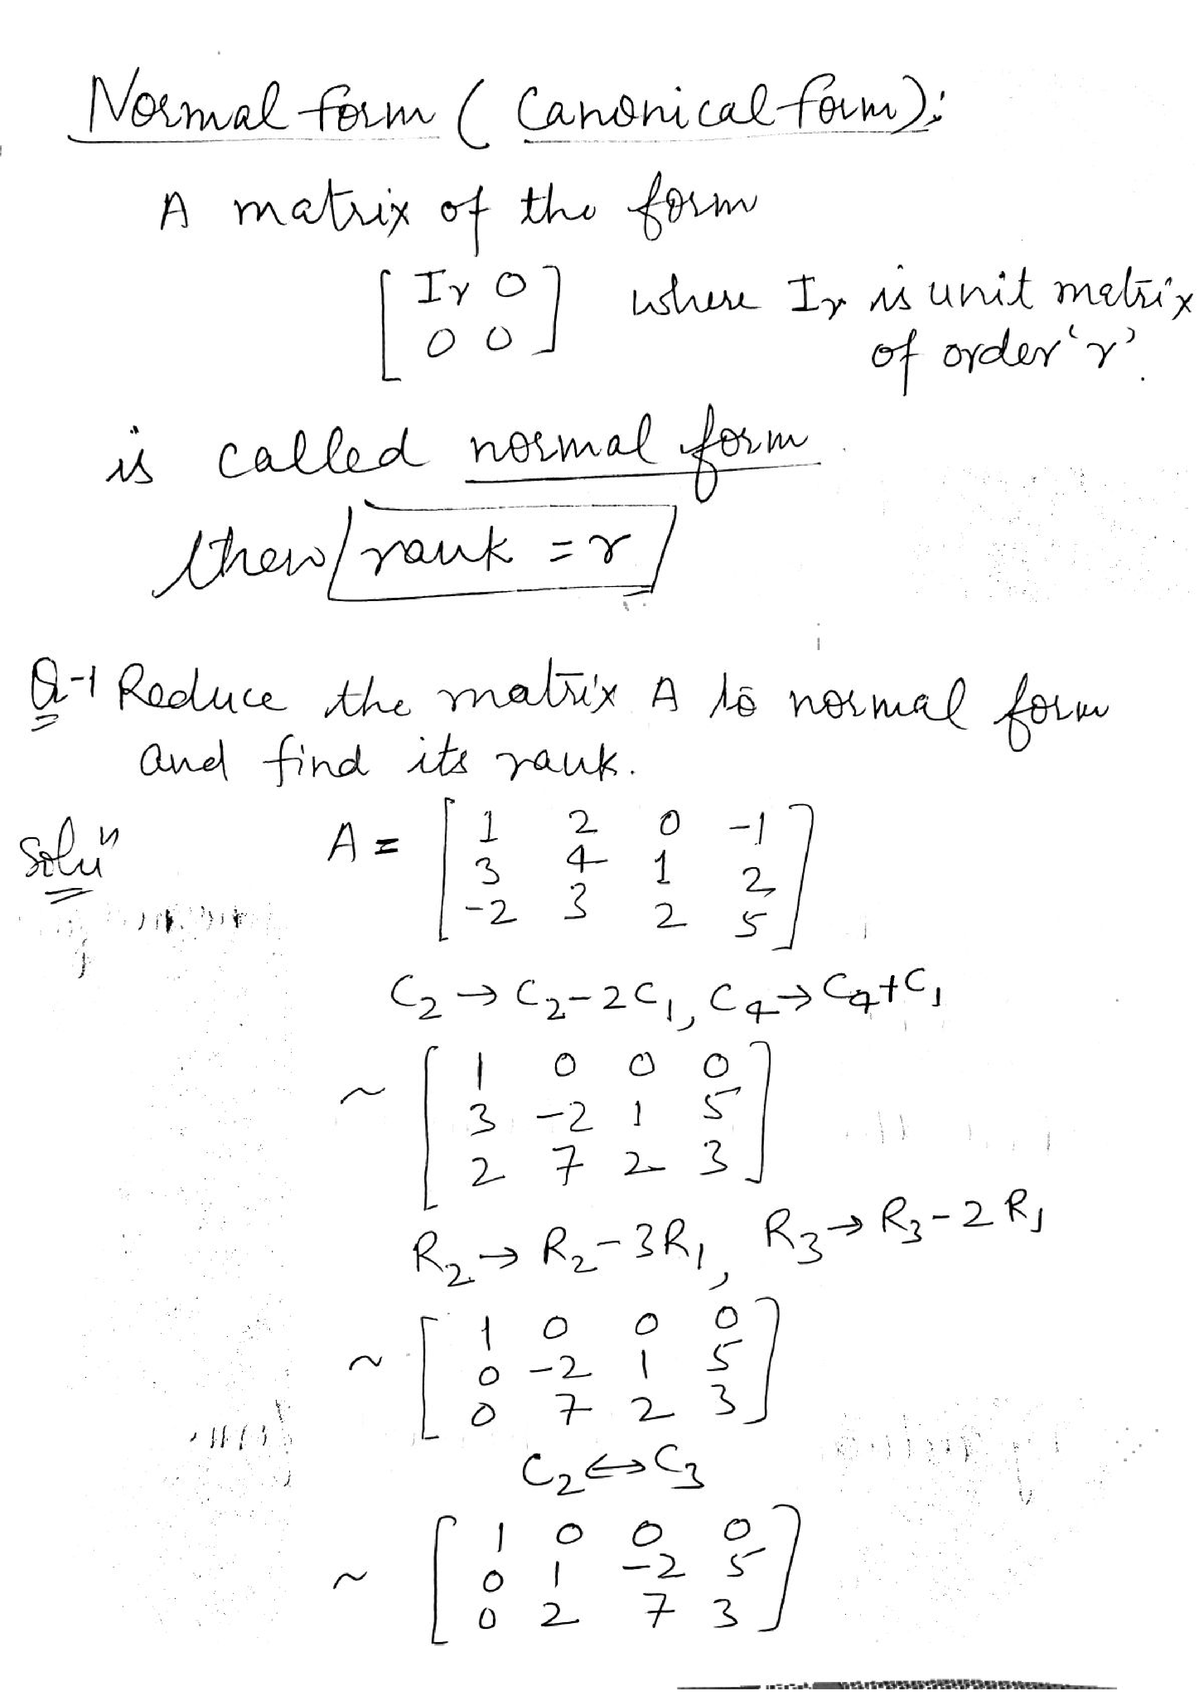 Normal form ( Canonical form):
A matrix of the form
[ Ir 0 where Ir is unit matrix
0 0 ] of order 'r'.
is called normal form
then rank = r
Q-1 Reduce the matrix A to normal form
and find its rank.
Soluⁿ
A = [ 1 2 0 -1
3 4 1 2
-2 3 2 5 ]
C₂ → C₂-2C₁, C₄ → C₄+C₁
~ [ 1 0 0 0
3 -2 1 5
2 7 2 3 ]
R₂ → R₂-3R₁, R₃ → R₃-2R₁
~ [ 1 0 0 0
0 -2 1 5
0 7 2 3 ]
C₂ ↔ C₃
~ [ 1 0 0 0
0 1 -2 5
0 2 7 3 ]